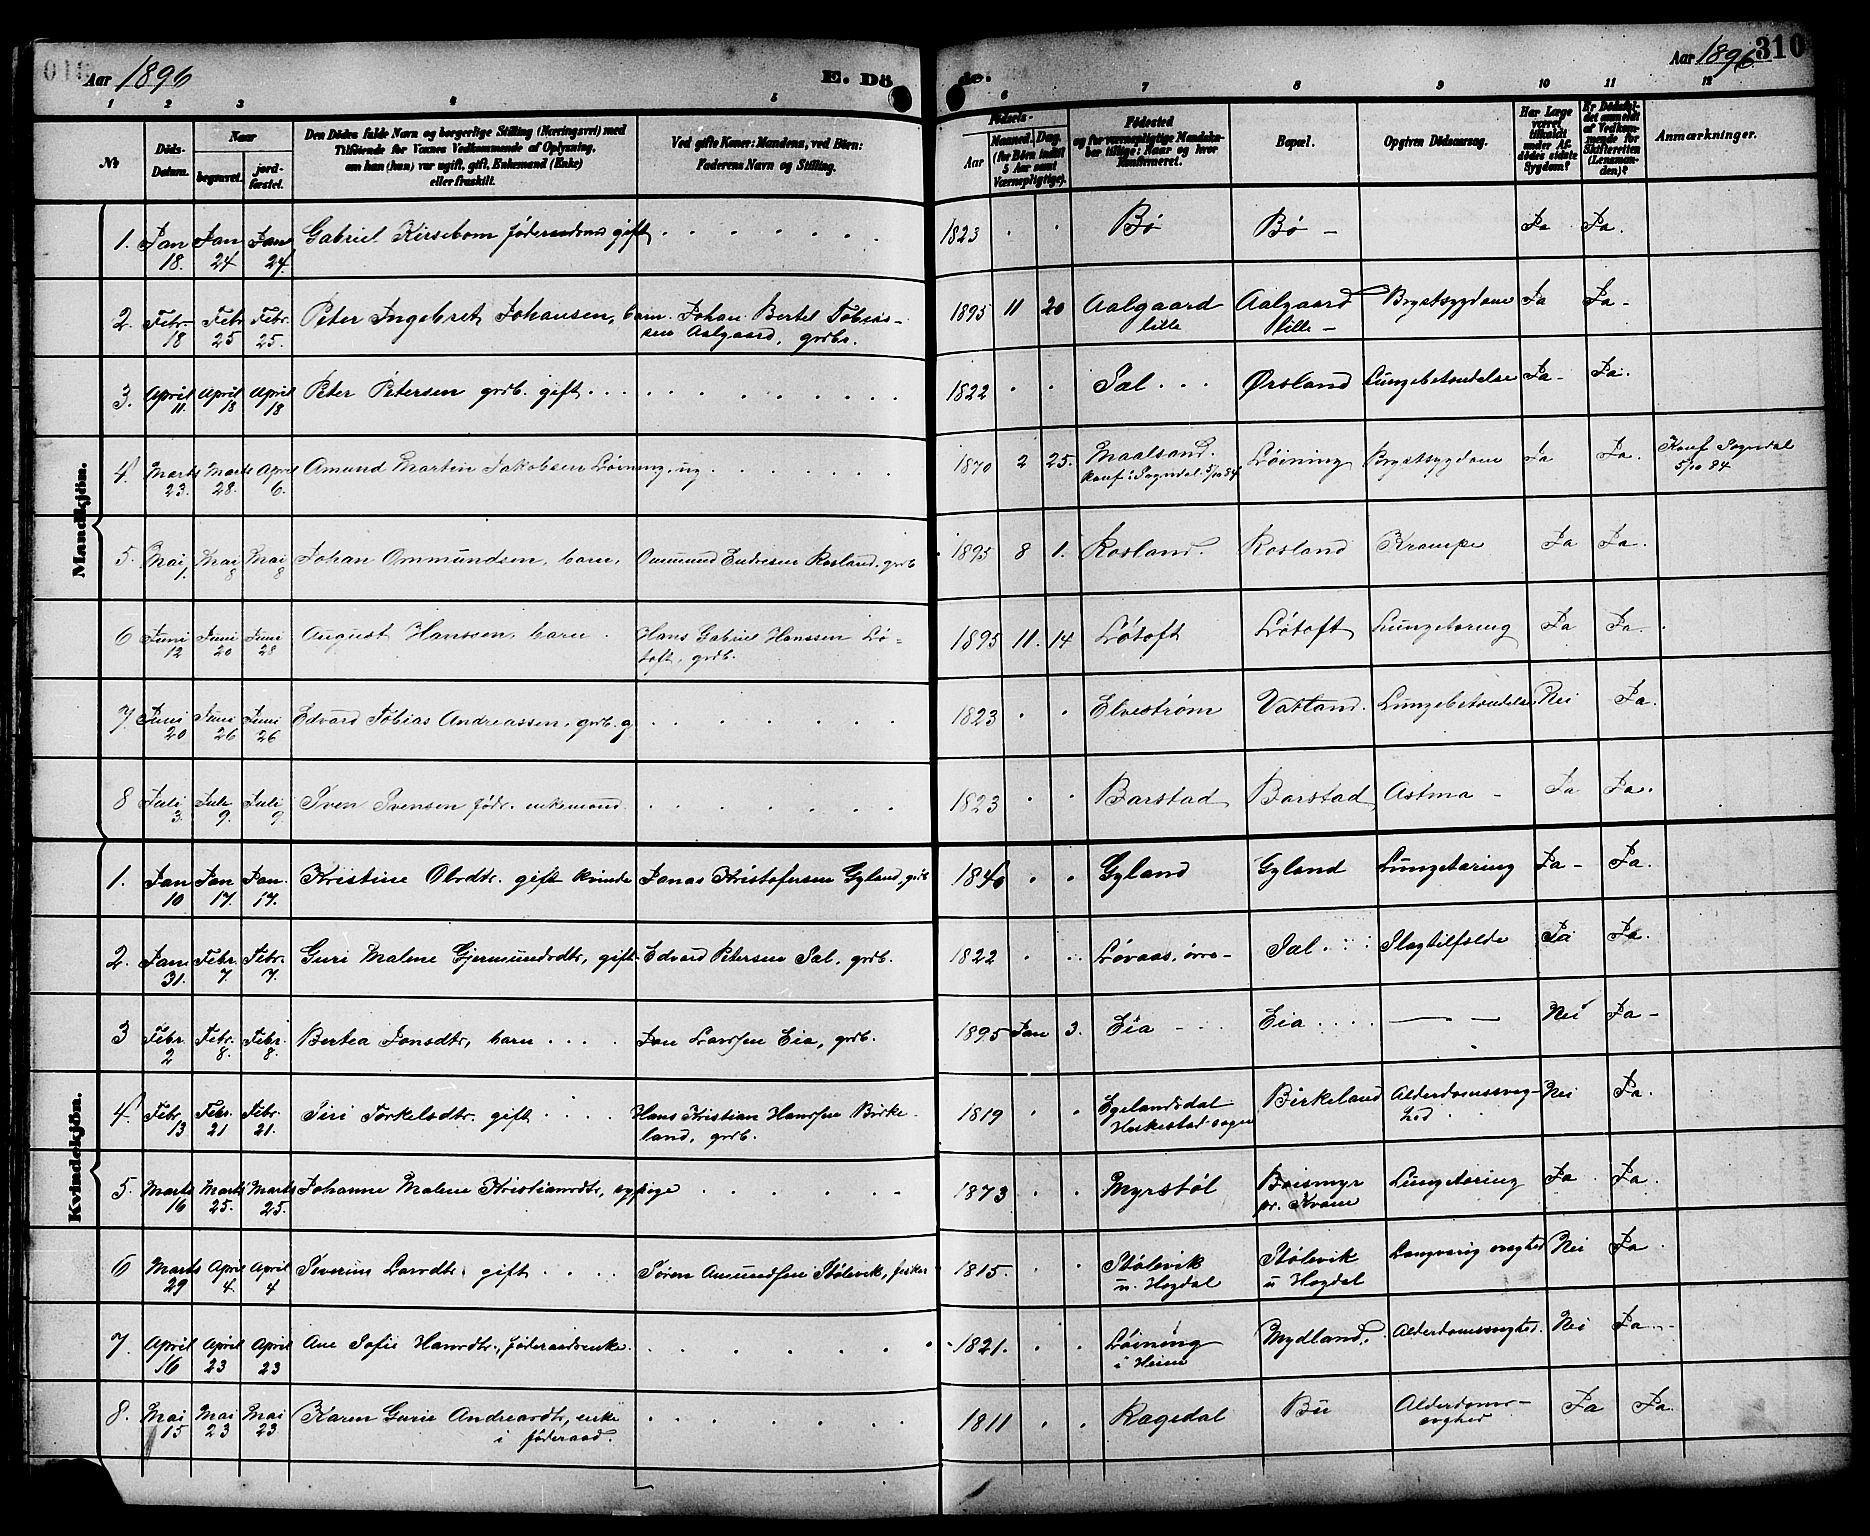 310
Aar 1896
E. Dö
de.
Aar 1896
1 2 3 4 5 6 7 8 9 10 11 12
No
Döds-Datum.
Naar
begravet.
jord-fæstet.
Den Dödes fulde Navn og borgerlige Stilling (Næringsvei) med
Tilföiende for Voxnes Vedkommende af Oplysning,
om han (hun) var ugift, gift, Enkemand (Enke)
eller fraskilt.
Ved gifte Koner: Mandens, ved Börn:
Faderens Navn og Stilling.
Födsels-
Aar
Maaned. Dag.
(for Börn indtil 5 Aar samt Værnepligtige).
Födested
og for værnepligtige Mandskaber tillige: Naar og hvor Konfirmeret.
Bopæl.
Opgiven Dödsaarsag.
Har Læge været tilkaldt under Afdödes sidste Sygdom?
Er Dödsfaldet anmeldt af Vedkommende for Skifteretten (Lensmanden)?
Anmærkninger.
Mandkjön.
1. Jan 18. Jan 24 Jan 24. Gabriel Kirsebom föderaadsmd gift 1823 Bö Bö – Ja Ja.
2. Febr. 18 Febr 25 Febr. 25. Peter Ingebret Johansen, barn. Johan Bertel Tobias-
sen Aalgaard, grdb. 1895 11 20 Aalgaard lille Aalgaard lille – Brystsygdom Ja Ja –
3. April 11. April 18 April 18 Peter Petersen grdb. gift 1822 Sal Ørsland Lungebetændelse Ja – Ja.
4. Marts 23. Marts 28. April 6. Amund Martin Jakobsen Löining, ug 1870 2 25. Maalsand. Konf i Sogndal 5/10 84 Löining Brystsygdom Ja Ja. Konf Sogndal 5/10 84
5. Mai 1. Mai 8 Mai 8 Johan Ommundsen, barn, Ommund Endresen Rosland, grdb 1895 8 1. Rosland. Rosland Krampe Ja Ja.
6 Juni 12 Juni 20 Juni 28 August Hanssen, barn. Hans Gabriel Hanssen Lö-
toft, grdb. 1895 11. 14 Lötoft Lötoft Lungetæring Ja Ja.
7 Juni 20 Juni 26 Juni 26 Edvard Tobias Andreassen, grdb. g 1823 Elvestrøm Vatland. Lungebetændelse Nei Ja.
8 Juli 3. Juli 9. Juli 9. Sven Svensen födr. enkemand. 1823 Barstad Barstad Astma – Ja Ja.
Kvindekjön.
1. Jan 10 Jan 17. Jan. 17. Kristine Olsdtr. gift kvinde Jonas Kristofersen Gyland, grdb 1846 Gyland Gyland Lungetæring Ja – Ja.
2. Jan 31. Febr. 7. Febr. 7. Guri Malene Gjermundsdtr, gift Edvard Petersen Sal, grdb. 1822 Lövaas, övre – Sal Slagtilfælde Ja Ja.
3 Febr. 2 Febr. 8. Febr. 8. Bertea Jonsdtr, barn Jon Larssen Eia, grdb. 1895 Jan 3. Eia Eia — Nei Ja –
4. Febr. 13 Febr. 21 Febr. 21. Siri Torkelsdtr. gift Hans Kristian Hanssen Birke-
land, grdb. 1819 Egelandsdal Heskestad sogn Birkeland Alderdomssvag-
hed Nei Ja.
5. Marts 16 Marts 25. Marts 25. Johanne Malene Kristiansdtr, sypige 1873 Myrstöl Boismyr pr. Kvam Lungetæring Ja Ja.
6 Marts 29 April 4. April 4 Severine Larsdtr. gift Sören Amundsen Stölsvik, fisker 1815. Stölsvik u. Hogdal Stölsvik u Hogdal Langvarig svaghed Nei Ja.
7. April 16 April 23 April 23 Ane Sofie Hansdtr., föderaadsenke. 1821. Löining i Heien Mydland. Alderdomssvaghed. Nei Ja
8. Mai 15 Mai 23 Mai 23 Karen Gurie Andreasdtr, enke
i föderaad. 1811 Ragedal Bu Alderdoms-
svaghed Ja Ja.